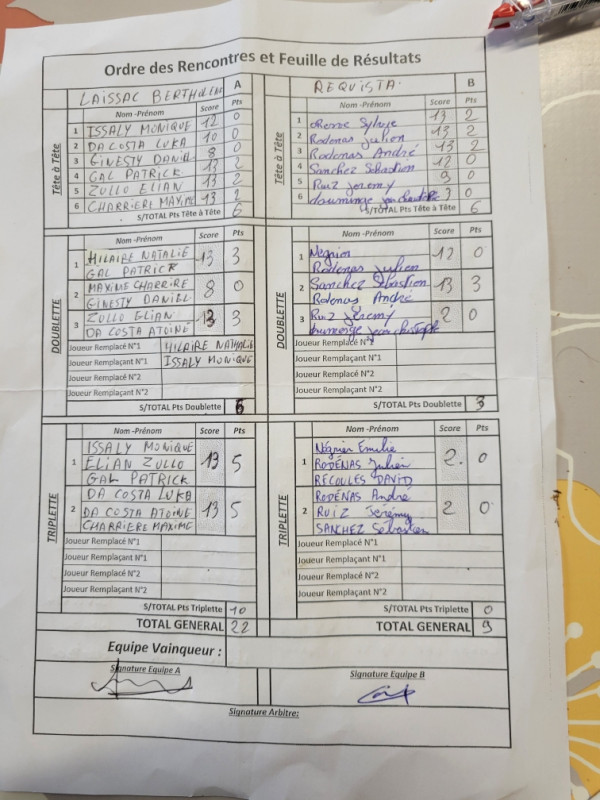 Ordre des Rencontres et Feuille de Résultats
LAISSAC BERTHOLENE A
Nom -Prénom Score Pts
Tête à Tête
1 ISSALY MONIQUE 12 0
2 DA COSTA LUKA 10 0
3 GINESTY DANIEL 8 0
4 GAL PATRICK 13 2
5 ZULLO ELIAN 13 2
6 CHARRIERE MAXIME 13 2
S/TOTAL Pts Tête à Tête 6
REQUISTA B
Nom -Prénom Score Pts
Tête à Tête
1 Sylvie 13 2
2 Rodenas Julien 13 2
3 Rodenas André 13 2
4 Sanchez Sébastien 12 0
5 Ruiz Jeremy 9 0
6 3 0
S/TOTAL Pts Tête à Tête 6
Nom -Prénom Score Pts
DOUBLETTE
1 HILAIRE NATALIE 13 3
GAL PATRICK
2 MAXIME CHARRIRE 8 0
GINESTY DANIEL
3 ZULLO ELIAN 13 3
DA COSTA ATOINE
Joueur Remplacé N°1 HILAIRE NATHALIE
Joueur Remplaçant N°1 ISSALY MONIQUE
Joueur Remplacé N°2
Joueur Remplaçant N°2
S/TOTAL Pts Doublette 6
Nom -Prénom Score Pts
DOUBLETTE
1 12 0
Rodenas Julien
2 Sanchez Sébastien 13 3
Rodenas André
3 Ruiz Jeremy 2 0
Joueur Remplacé N°1
Joueur Remplaçant N°1
Joueur Remplacé N°2
Joueur Remplaçant N°2
S/TOTAL Pts Doublette 3
Nom -Prénom Score Pts
TRIPLETTE
1 ISSALY MONIQUE
ELIAN ZULLO 13 5
GAL PATRICK
2 DA COSTA LUKA
DA COSTA ATOINE 13 5
CHARRIERE MAXIME
Joueur Remplacé N°1
Joueur Remplaçant N°1
Joueur Remplacé N°2
Joueur Remplaçant N°2
S/TOTAL Pts Triplette 10
TOTAL GENERAL 22
Nom -Prénom Score Pts
TRIPLETTE
1 Négrier Emilie
RODÉNAS Julien 2. 0
RECOULES DAVID
2 RODÉNAS André
RUIZ Jérémy 2 0
SANCHEZ Sébastien
Joueur Remplacé N°1
Joueur Remplaçant N°1
Joueur Remplacé N°2
Joueur Remplaçant N°2
S/TOTAL Pts Triplette 0
TOTAL GENERAL 9
Equipe Vainqueur :
Signature Equipe A
Signature Equipe B
Signature Arbitre: